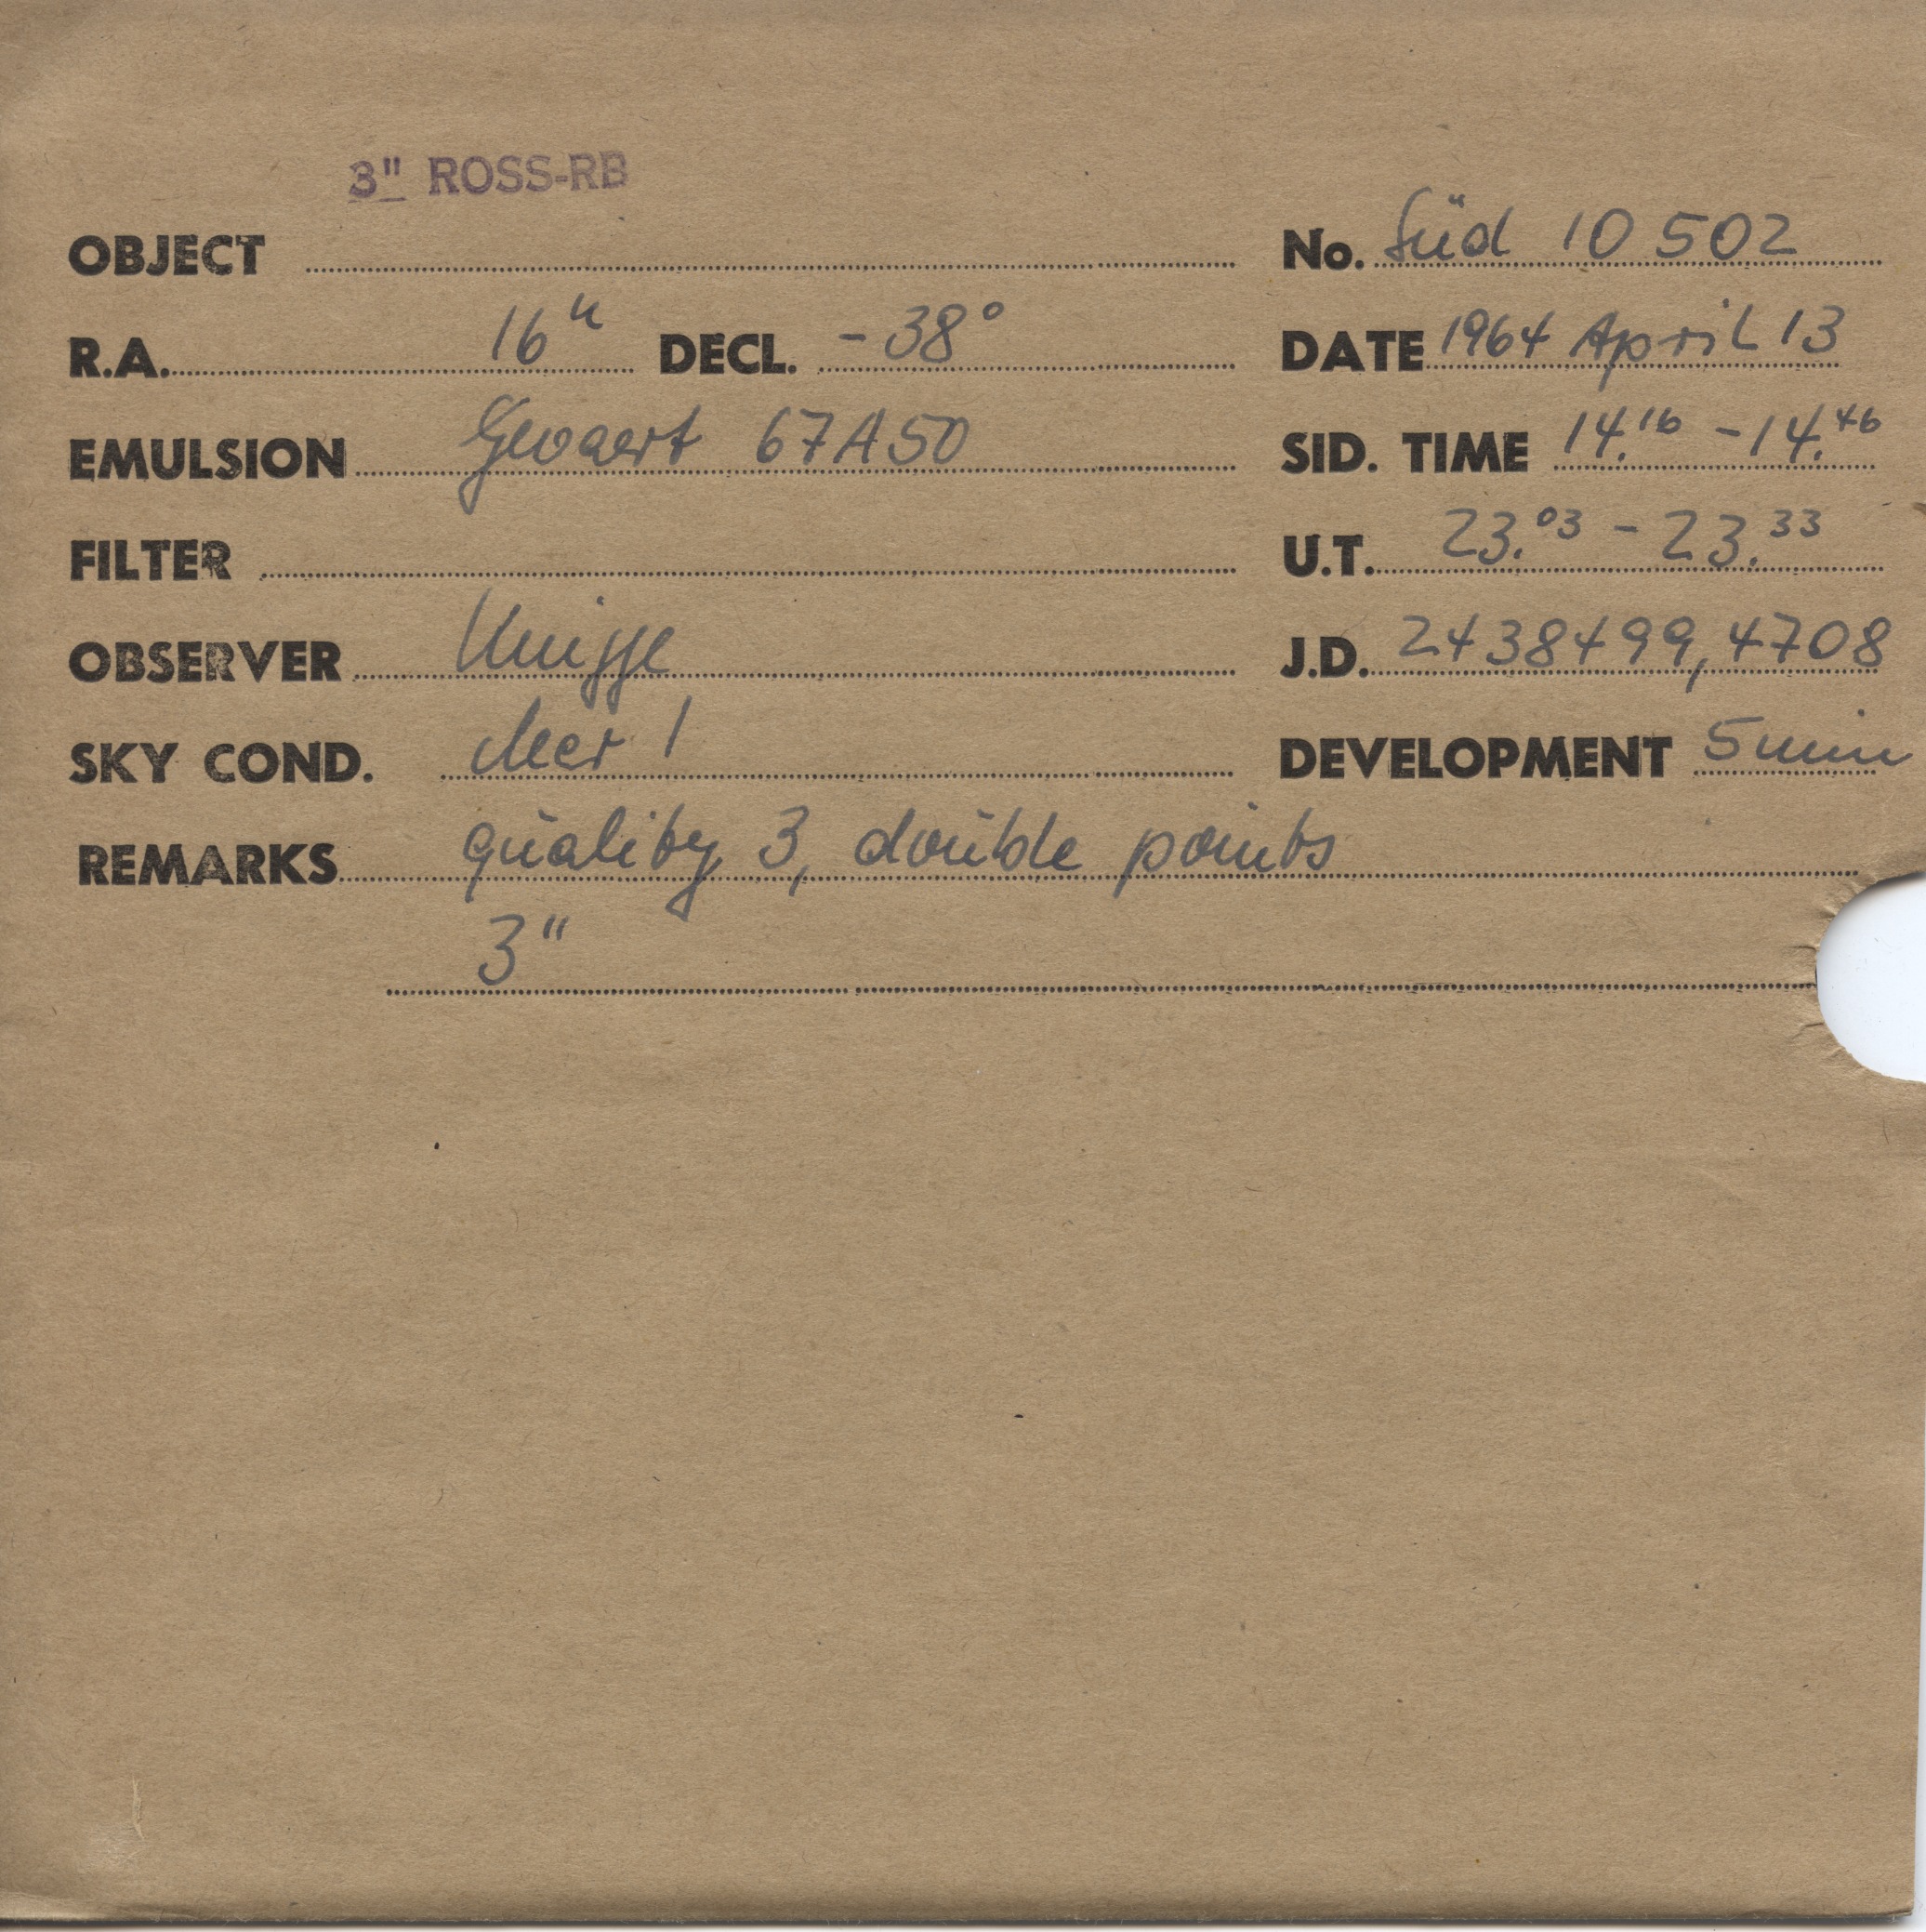 3" ROSS-RB
OBJECT No. Süd 10 502
R.A. 16h DECL. -38° DATE 1964 April 13
EMULSION Gevaert 67A50 SID. TIME 14.16 - 14.46
FILTER U.T. 23.03 - 23.33
OBSERVER Knigge J.D. 2438499,4708
SKY COND. clear 1 DEVELOPMENT 5 min
REMARKS quality 3, double points
3"